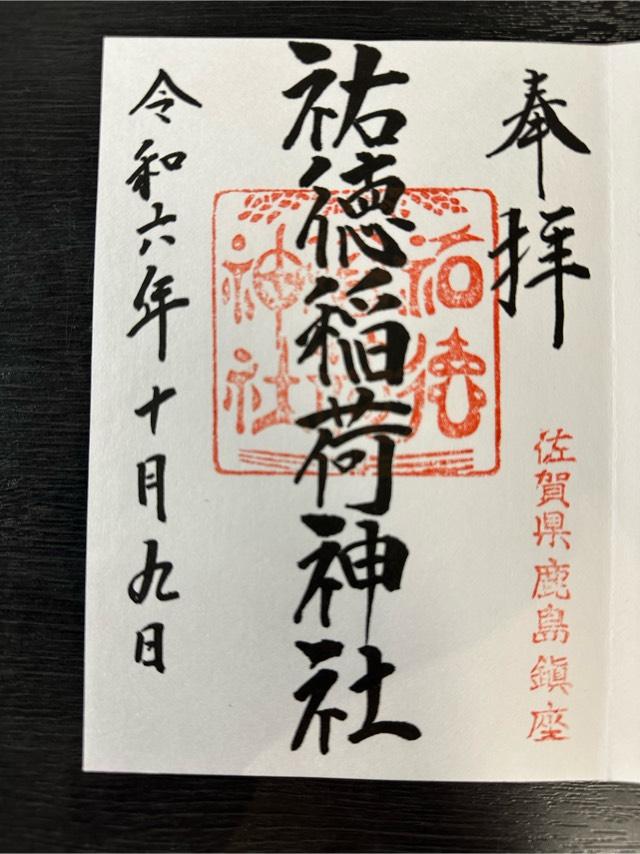 奉拝
佐賀県鹿島鎮座
祐徳稲荷神社
祐徳
神社
令和六年十月九日